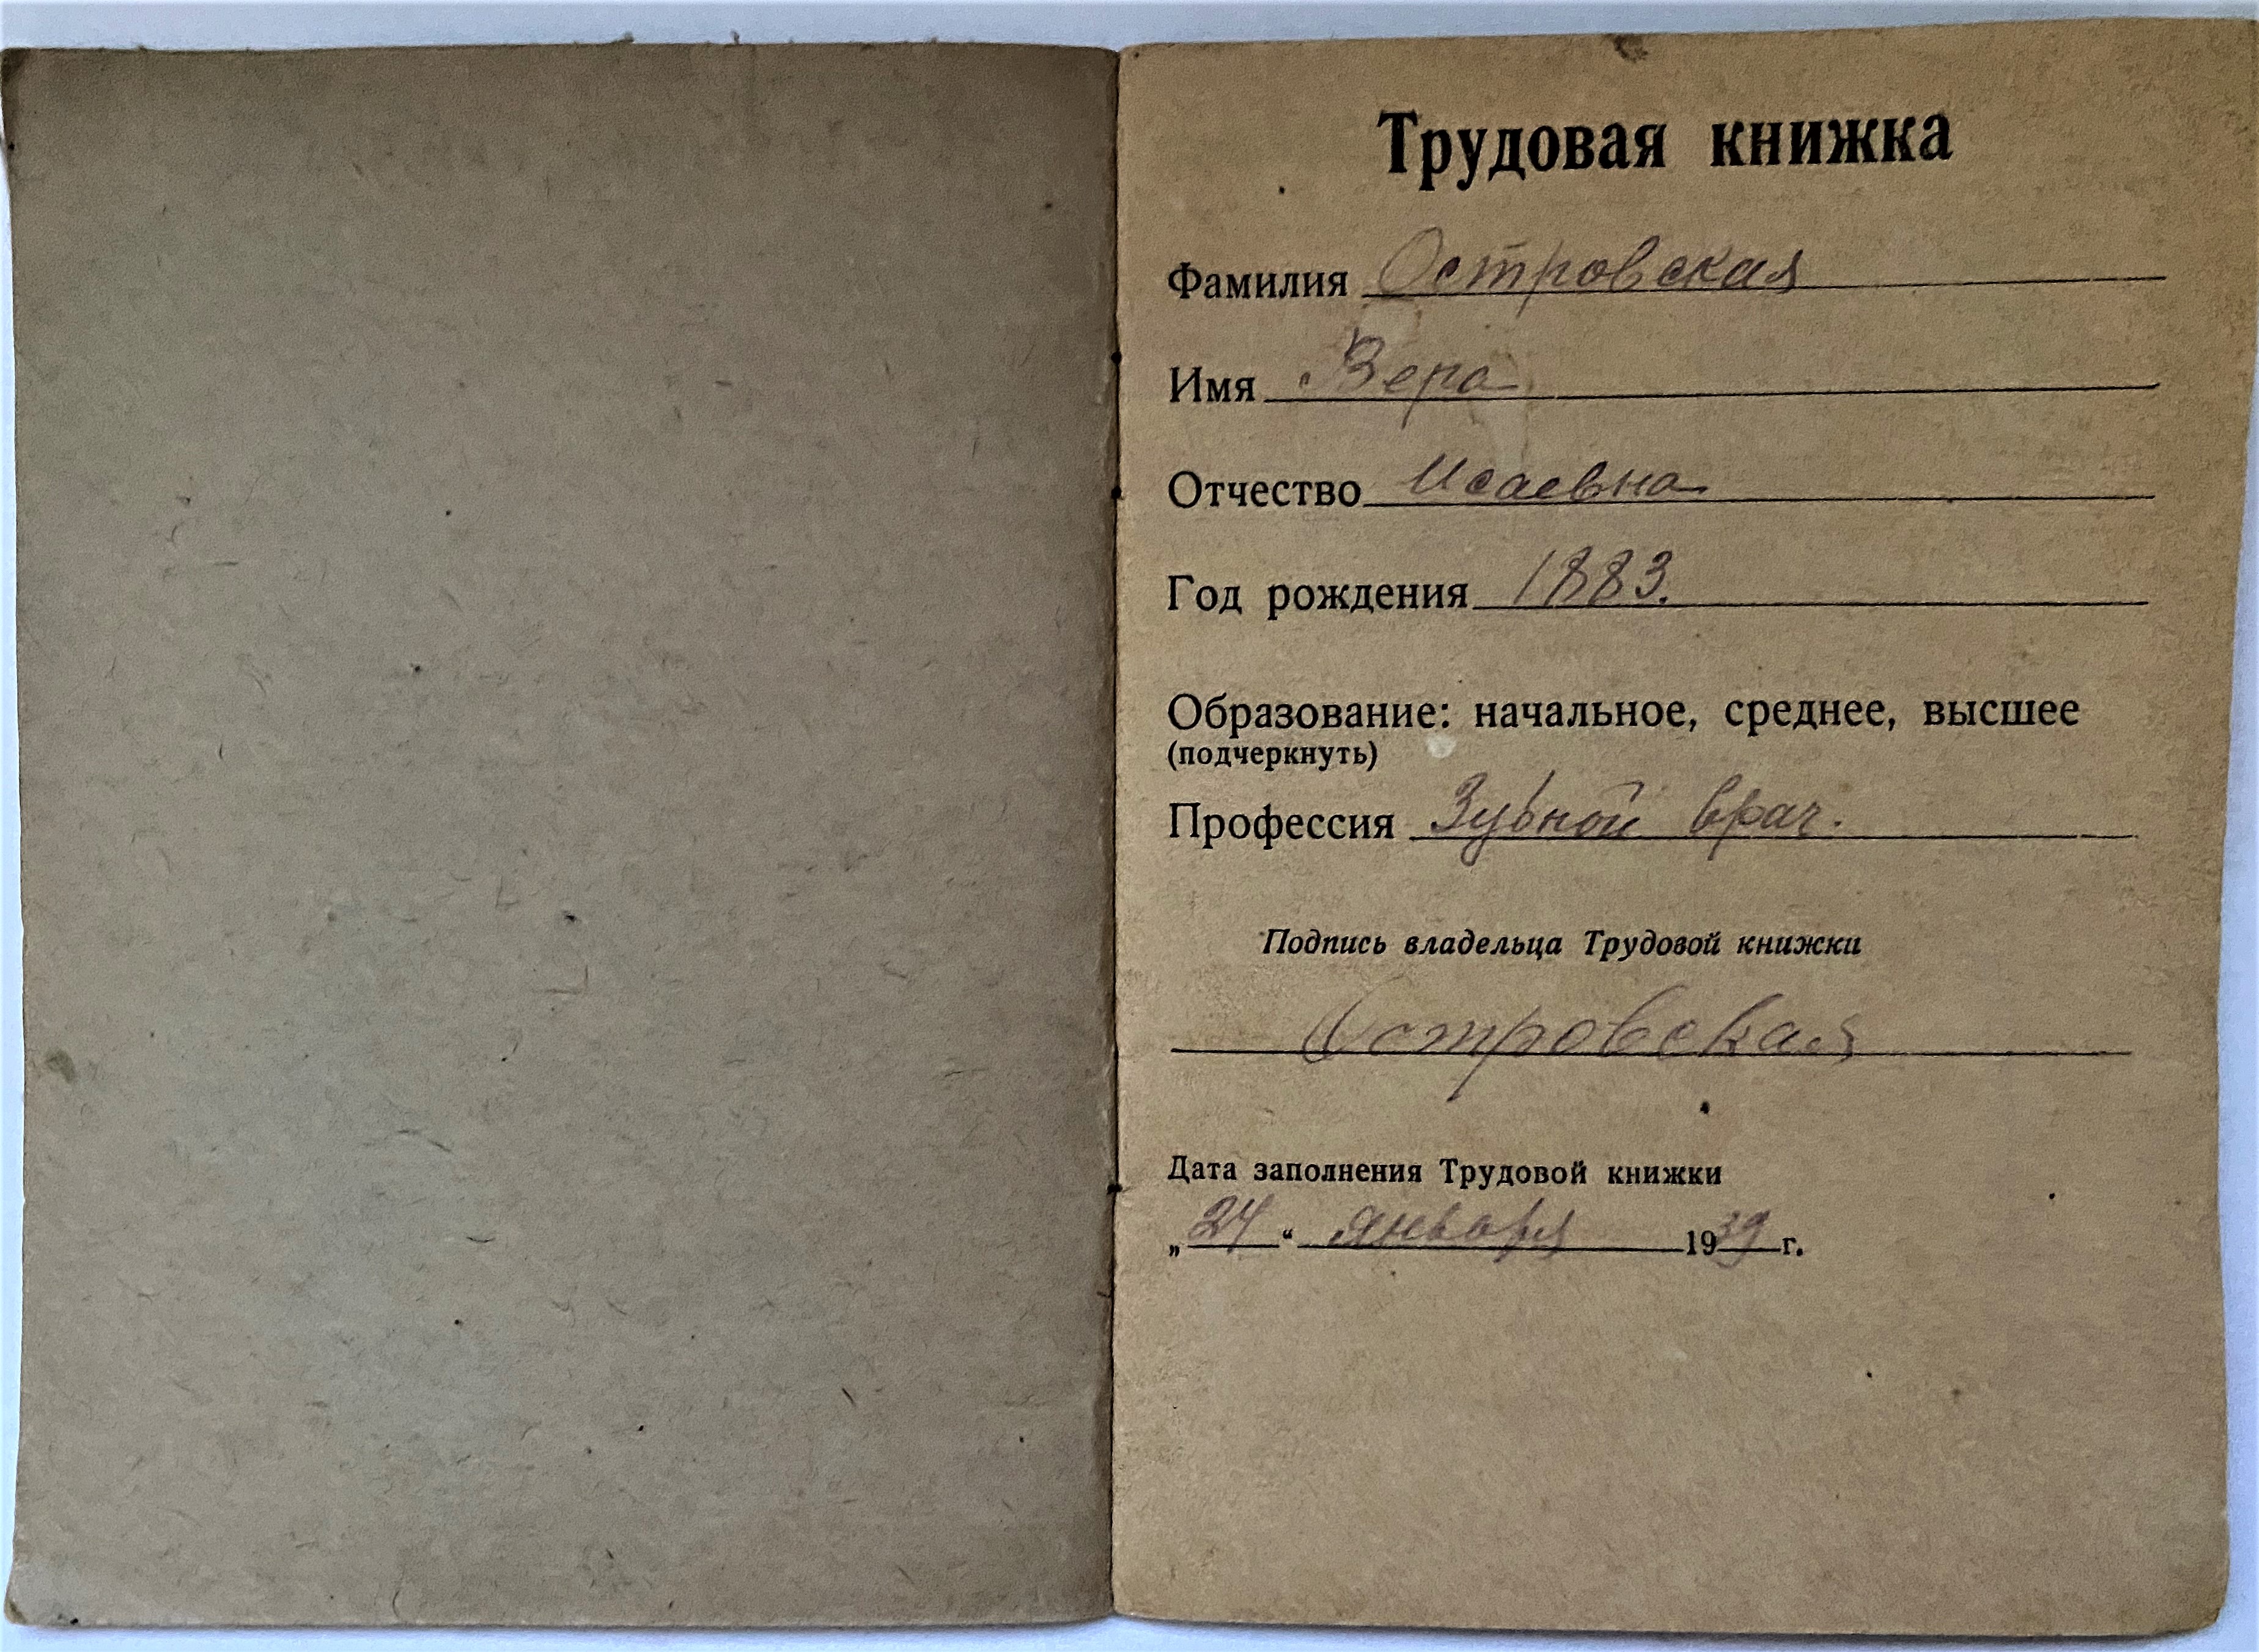 Трудовая книжка
Фамилия Островская
Имя Вера
Отчество Исаевна
Год рождения 1883.
Образование: начальное, среднее, высшее
(подчеркнуть)
Профессия Зубной врач.
Подпись владельца Трудовой книжки
Островская
Дата заполнения Трудовой книжки
„24“ января 1939 г.